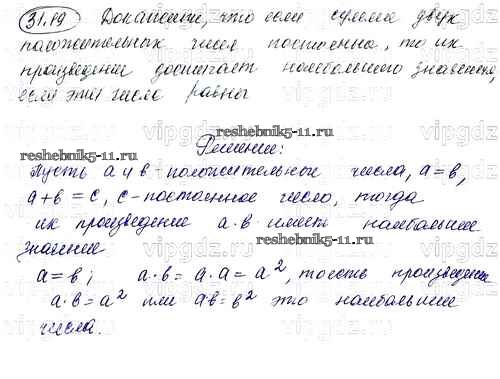 31.19 Докажите, что если сумма двух
положительных чисел постоянна, то их
произведение достигает наибольшего значения,
если эти числа равны
reshebnik5-11.ru
Решение:
Пусть a и b - положительные числа, a = b,
a + b = c, c - постоянное число, тогда
их произведение a · b имеет наибольшее
значение
reshebnik5-11.ru
a = b; a · b = a · a = a², то есть произведение
a · b = a² или ab = b² это наибольшие
числа.
vipgdz.ru